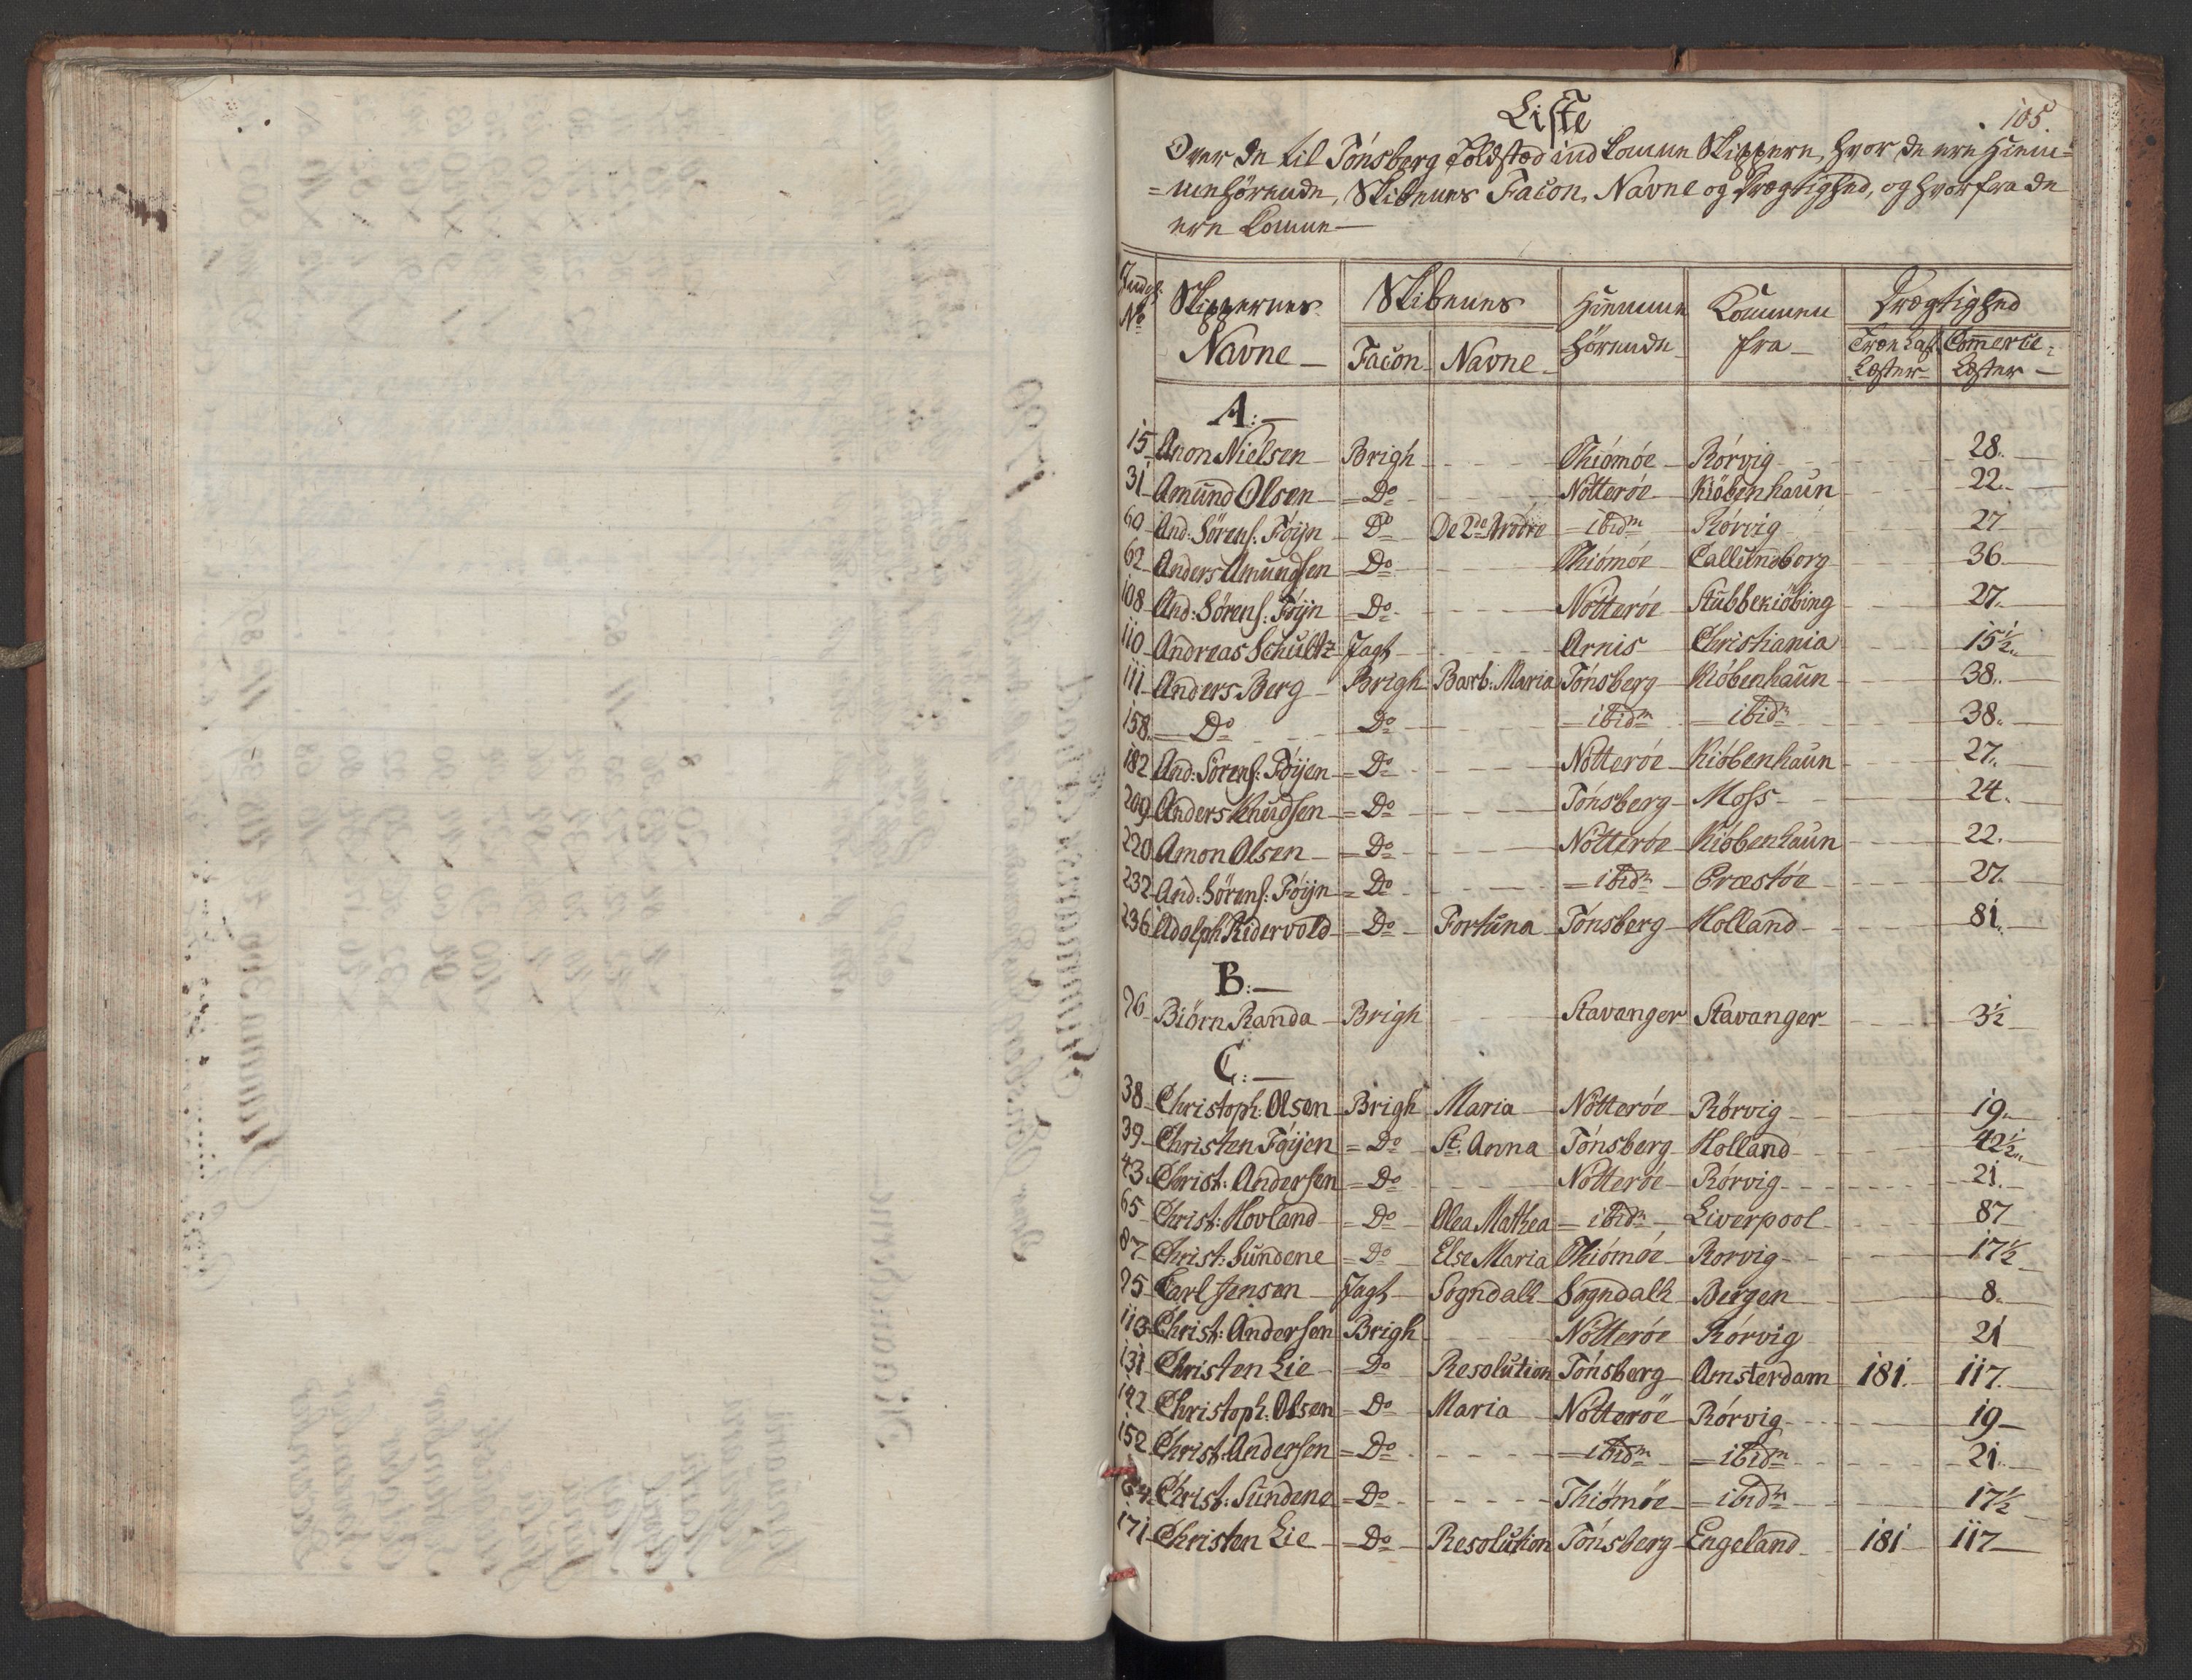 105.
Liste
Over de til Tønsberg Toldsted ind komne Skippere, hvor de ere Hiem=
=mehørende, Skibenes Facon, Navne og Drægtighed, og hvorfra de
ere komne —
Indg. No Skippernes Navne — Skibenes Facon Navne — Hiemme hørende — Kommen fra — Drægtighed Læster — Commerce Læster —
A: —
15 Anon Nielsen — Brigh — Thiömöe — Rörvig — 28. —
31 Amund Olsen — = Do — Nötteröe — Kiöbenhaun — 22. —
60 And: Sörens: Föijn — Do De 2de Brödre — ibidm — Rörvig — 27
62 Anders Amundsen = Do — Thiömöe Callundborg — 36 —
108 And: Sörens: Föijn = Do — Nötteröe Stubbekiöbing — 27. —
110 Andreas Schultz Jagt — Arnis Christiania — 15½ —
111 Anders Berg — Brigh Barb: Maria Tönsberg Kiöbenhaun — 38. —
158 — Do — Do — = ibidm — = ibidm — 38. —
182 And: Sörens: Föijen = Do — Nötteröe Kiöbenhaun — 27. —
209 Anders Knudsen = Do — Tönsberg Moss — 24. —
220 Amon Olsen — = Do — Nötteröe Kiöbenhaun — 22. —
232 And: Sörens: Föijn = Do — = ibidm — Præstöe — 27. —
236 Adolph Ridervold — Do — Fortuna — Tönsberg Holland — 81. —
B: —
76 Biörn Randa — Brigh — Stavanger Stavanger — 3½
C: —
38 Christoph: Olsen Brigh Maria — Nötteröe — Rörvig — 19. —
39 Christen Föijen = Do St. Anna Tönsberg Holland — 42½
43 Christ: Andersen = Do — Nötteröe — Rörvig — 21. —
65 Christ: Hovland — = Do — Olea Mathea = ibidm — Liverpool — 87
87 Christ: Sundene = Do — Else Maria Thiömöe Rorvig — 17½
95 Carl Jensen — Jagt — Sogndalh Sogndalh Bergen — 8. —
113 Christ: Andersen Brigh — Nötteröe Rörvig — 21
131 Christen Lie — = Do — Resolution Tönsberg Amsterdam 181. 117. —
142 Christoph: Olsen = Do — Maria — Nötteröe Rörvig — 19 —
152 Christ: Andersen = Do — = ibidm — = ibidm — 21. —
Christ: Sundene = Do — Thiömöe = ibidm — 17½
171 Christen Lie — = Do — Resolution Tönsberg Engeland — 181 117 —